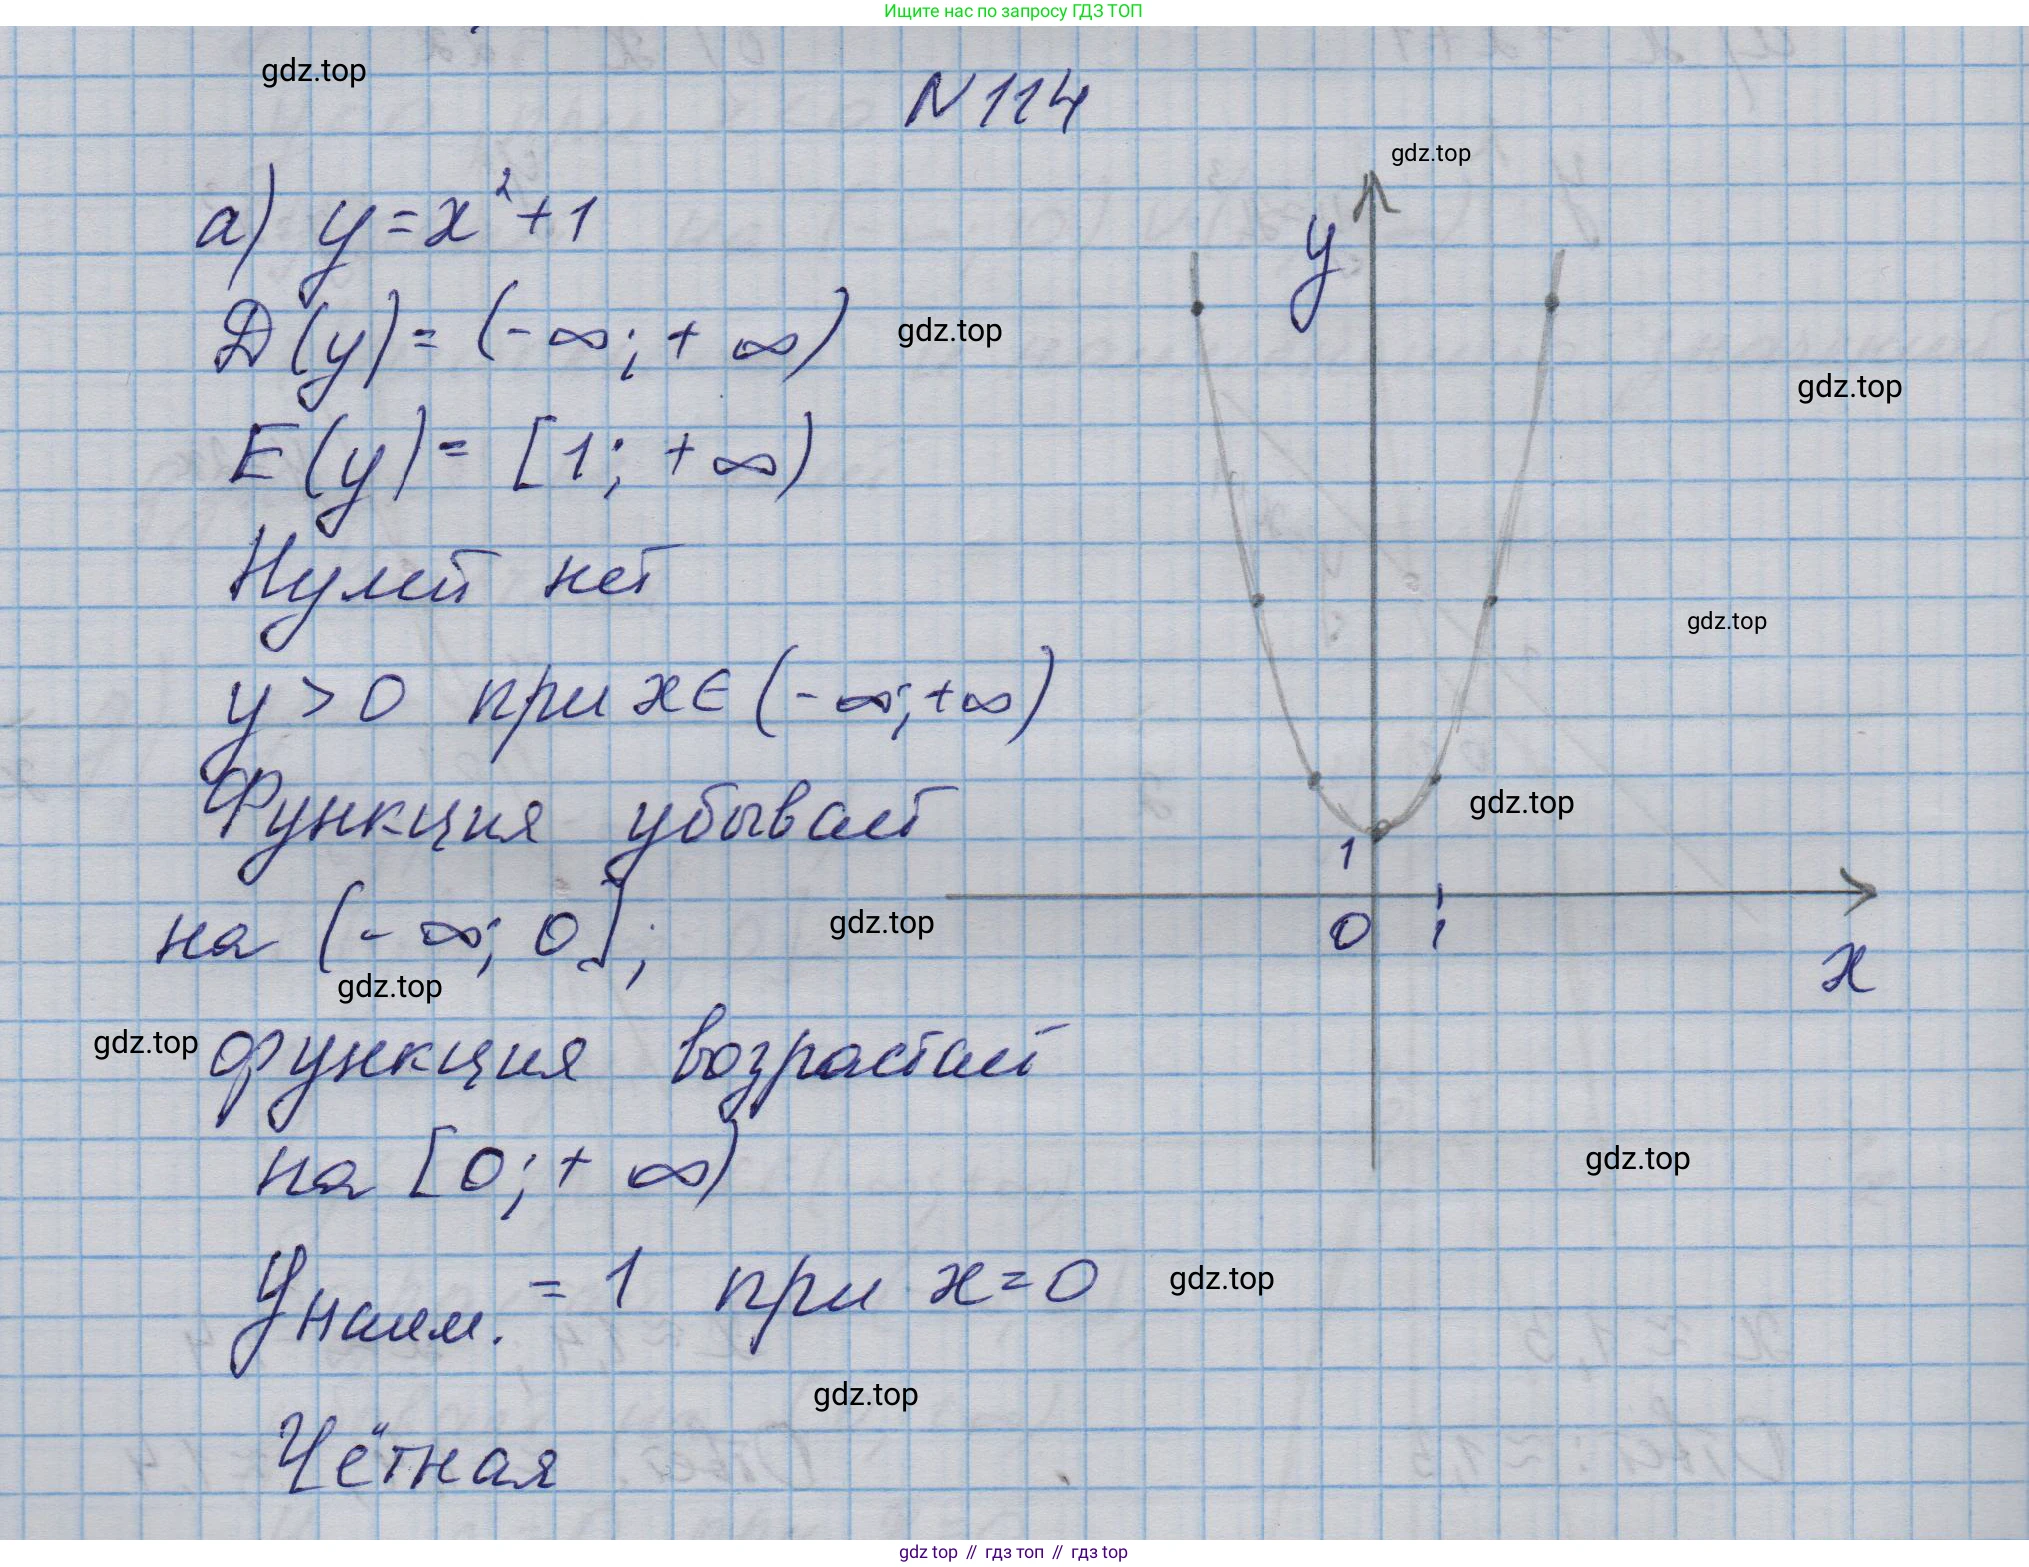 Ищите нас по запросу ГДЗ ТОП
gdz.top
N 114
gdz.top
а) y = x² + 1
y
D(y) = (-∞; + ∞)
gdz.top
gdz.top
E(y) = [1; +∞)
Нулей нет
gdz.top
y > 0 при x ∈ (-∞; +∞)
Функция убывает
gdz.top
1
на (-∞; 0];
gdz.top
0 1
x
gdz.top
gdz.top
функция возрастает
на [0; + ∞)
gdz.top
y наим. = 1 при x = 0
gdz.top
gdz.top
Чётная
gdz.top // гдз топ // гдз top